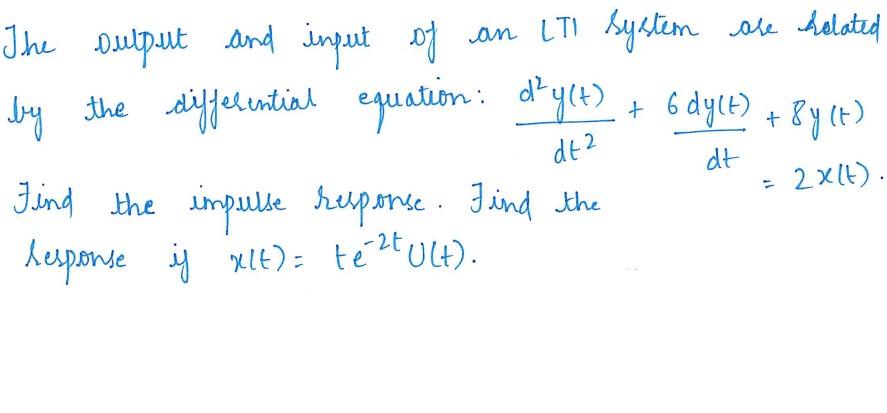 The output and input of an LTI System are related
by the differential equation: d²y(t)/dt² + 6dy(t)/dt + 8y(t)
= 2x(t).
Find the impulse response. Find the
response if x(t) = te^{-2t}U(t).